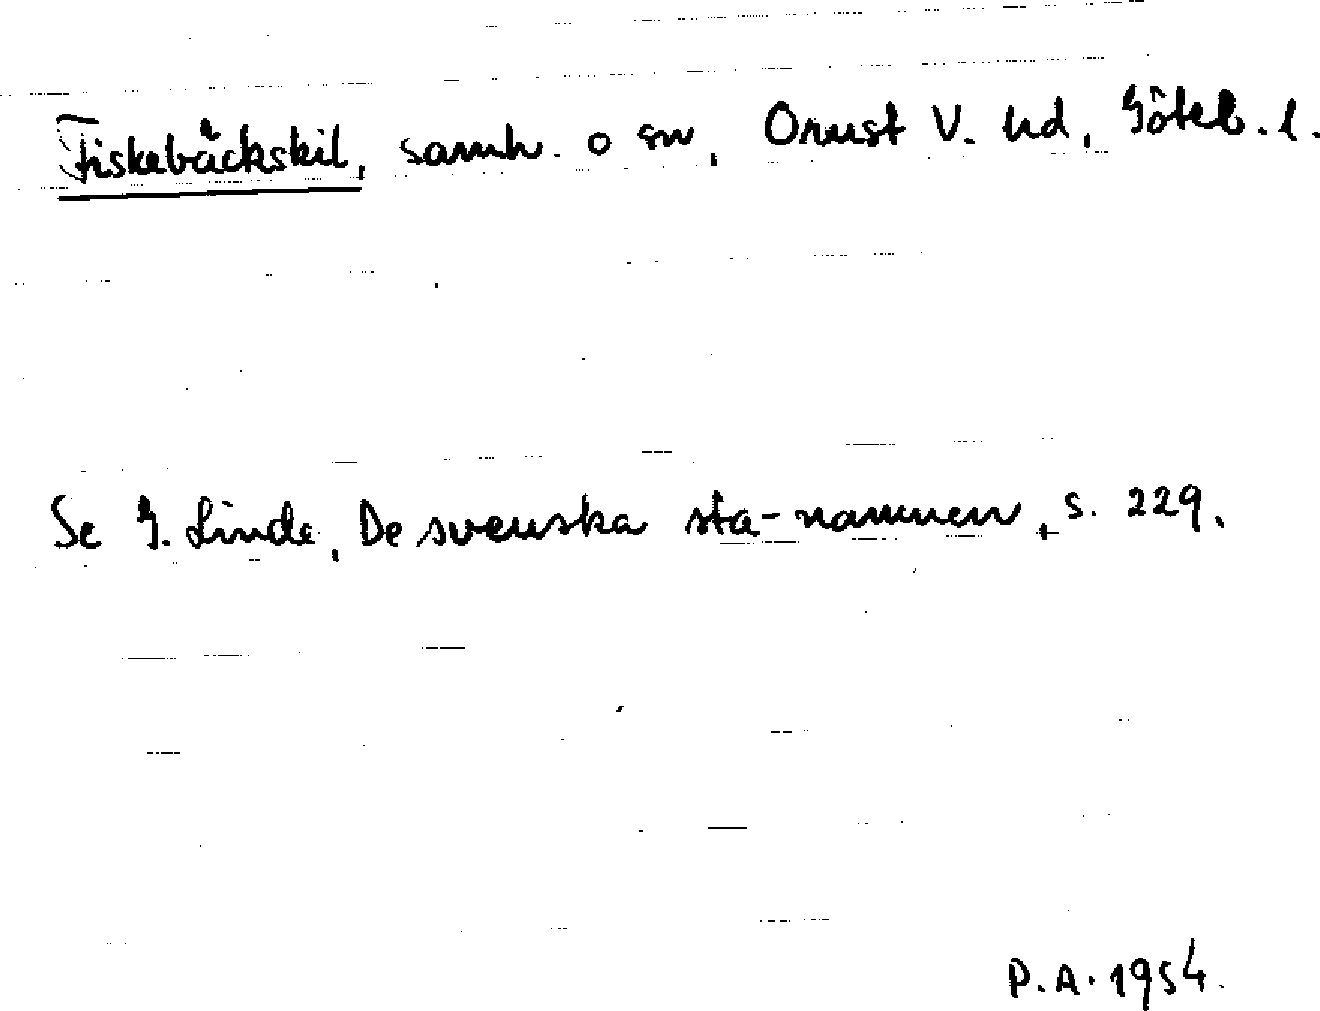 Fiskebäckskil, samh. o sn, Orust V. hd, Göteb. l.
Se G. Linde, De svenska sta-namnen, s. 229.
P.A. 1954.